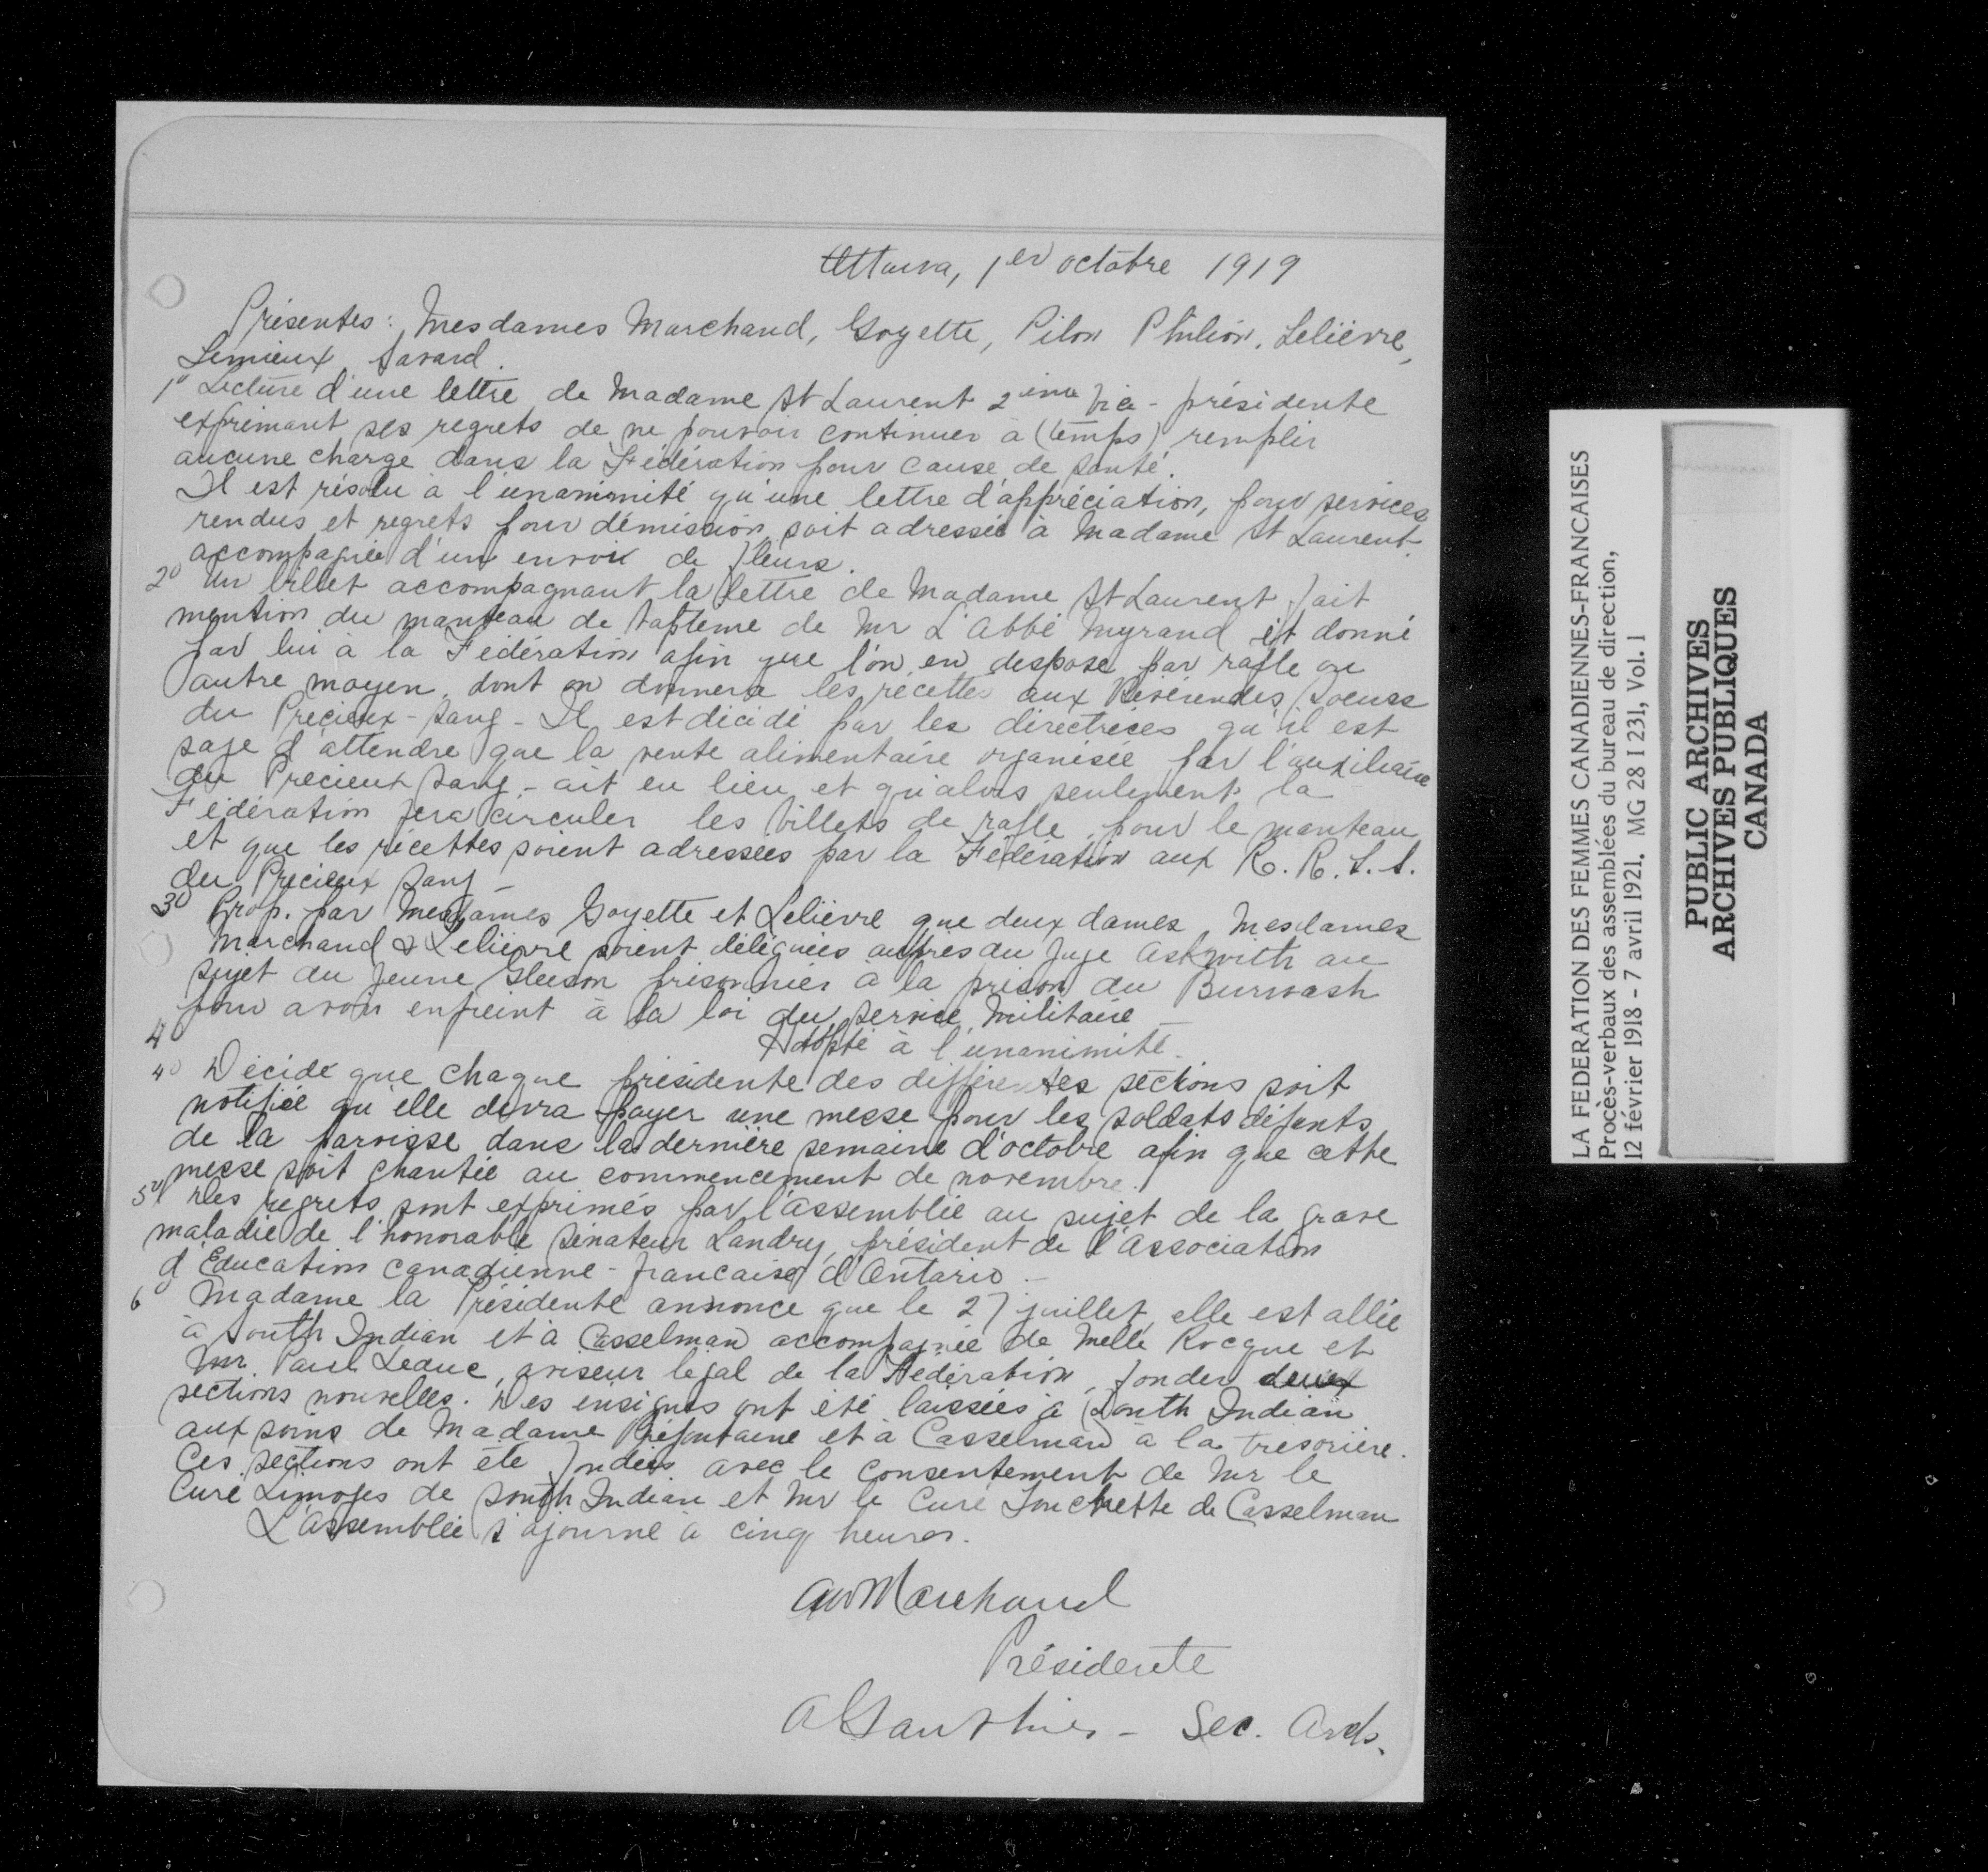 Ottawa, 1er octobre 1919
Présentes: Mesdames Marchand, Goyette, Pilon Philion, Lelièvre,
Lemieux, Savard.
1o Lecture d'une lettre de Madame St Laurent 2ième Vice-présidente
exprimant ses regrets de ne pouvoir continuer à (temps) remplir
aucune charge dans la Fédération pour cause de santé.
Il est résolu à l'unanimité qu'une lettre d'appréciation, pour services
rendus et regrets pour démission, soit adressée à Madame St Laurent.
accompagnée d'un envoi de fleurs.
2o Un billet accompagnant la lettre de Madame St Laurent fait
mention du manteau de baptême de Mr L'Abbé Myrand et donné
par lui à la Fédération afin que l'on en dispose par rafle ou
autre moyen, dont on donnera les recettes aux Révérendes Soeurs
du Précieux-Sang - Il est décidé par les directrices qu'il est
sage d'attendre que la vente alimentaire organisée par l'auxiliaire
du Precieux Sang - ait eu lieu et qu'alors seulement la
Fédération fera circuler les billets de rafle, pour le manteau
et que les recettes soient adressées par la Fédération aux R. R. S. S.
du Précieux Sang -
3o Prop. par Mesdames Goyette et Lelièvre que deux dames Mesdames
Marchand & Lelièvre soient déléguées auprès du Juge Askwith au
sujet du jeune Gleeson prisonnier à la prison du Burwash
pour avoir enfreint à la loi du service Militaire -
4o
Adopté à l'unanimité.
4o Décidé que chaque présidente des différentes sections soit
notifiée qu'elle devra payer une messe pour les soldats défunts
de la paroisse dans la dernière semaine d'octobre afin que cette
messe soit chantée au commencement de novembre.
5o Des regrets sont exprimés par l'assemblée au sujet de la grave
maladie de l'honorable sénateur Landry, président de l'Association
d'Education canadienne-francaise d'Ontario -
6 Madame la Présidente annonce que le 27 juillet, elle est allée
à South Indian et à Casselman accompagnée de Melle Rocque et
Mr. Paul Leduc, aviseur légal de la Fédération, fonder deux
sections nouvelles. Des insignes ont été laissées à South Indian
aux soins de Madame Préfontaine et à Casselman à la trésorière.
Ces sections ont été fondées avec le consentement de Mr le
Curé Limoges de South Indian et Mr le Curé Touchette de Casselman
L'Assemblée s'ajourne à cinq heures.
AW Marchand
Présidente
A Gauthier - Sec. Arch.
LA FEDERATION DES FEMMES CANADIENNES-FRANCAISES
Procès-verbaux des assemblées du bureau de direction,
12 février 1918 - 7 avril 1921. MG 28 I 231, Vol. 1
PUBLIC ARCHIVES
ARCHIVES PUBLIQUES
CANADA